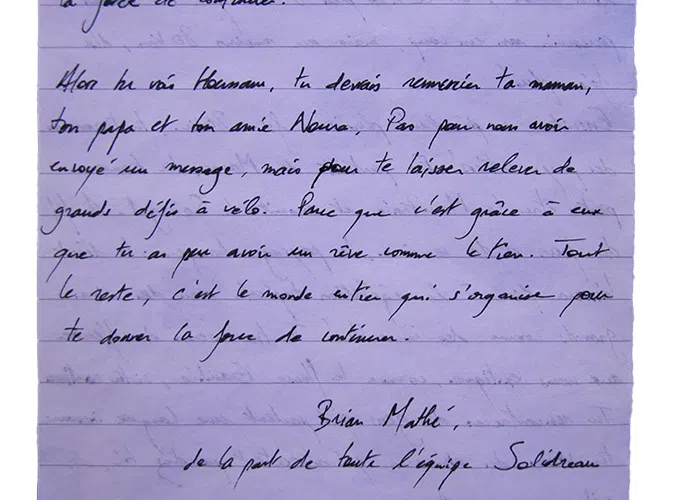 la force de continuer.
Alors tu vois Houssam, tu devrais remercier ta maman,
ton papa et ton amie Noura, Pas pour nous avoir
envoyé un message, mais pour te laisser relever de
grands défis à vélo. Parce que c'est grâce à eux
que tu as pu avoir un rêve comme le tien. Tout
le reste, c'est le monde entier qui s'organise pour
te donner la force de continuer.
Brian Mathé,
de la part de toute l'équipe Solidream